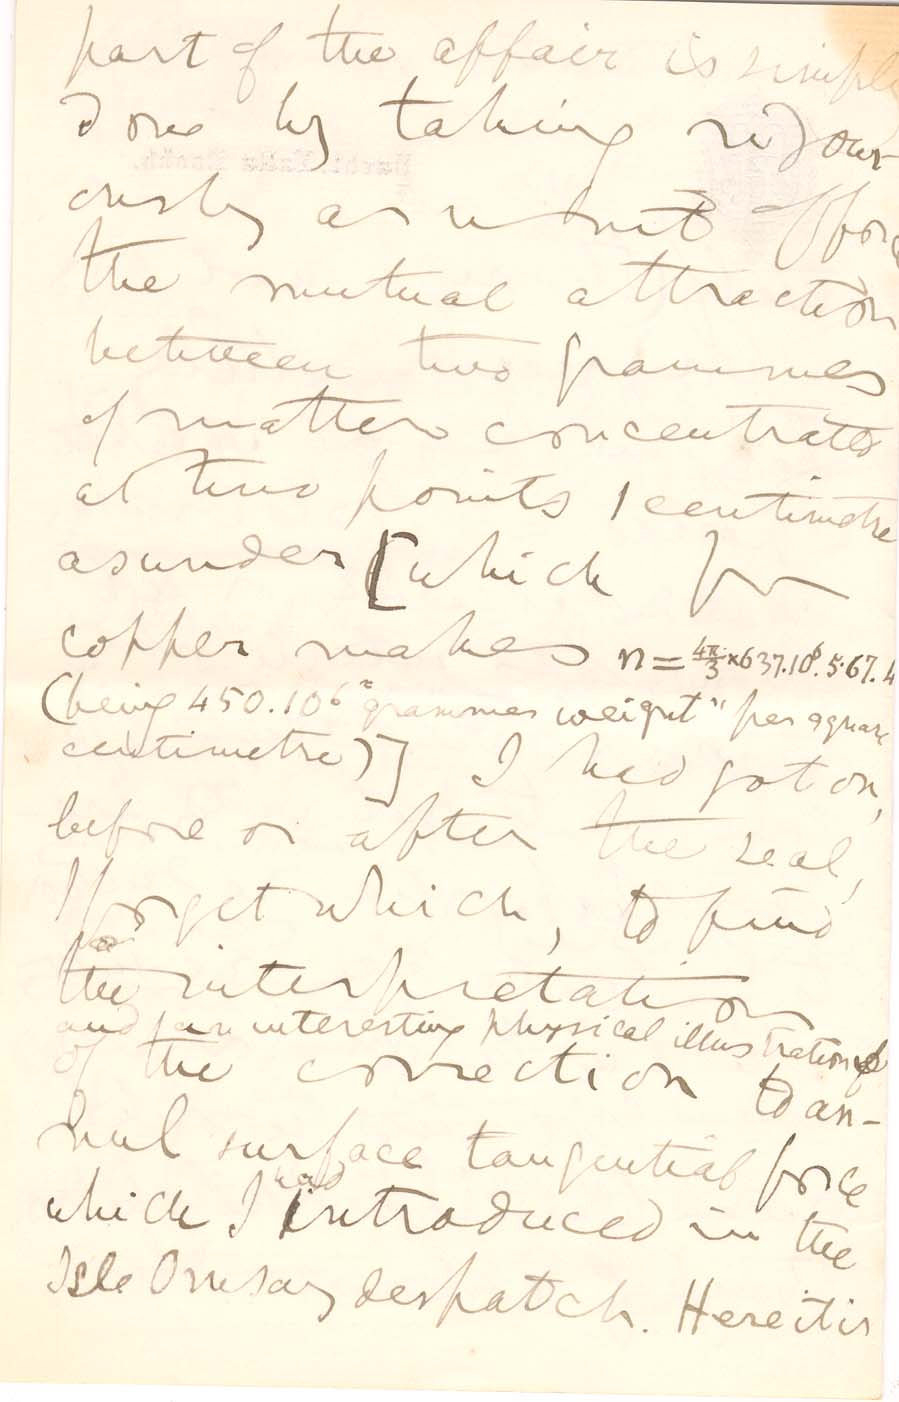 part of the affair is simply
done by taking rigour-
ously as unit of force
the mutual attraction
between two grammes
of matter concentrated
at two points 1 centimetre
asunder [which for
copper makes n = 4π/3 × 637.10⁶. 5.67.4
(being 450.10⁶ "grammes weight" per square
centimetre)] I had got on,
before or after the seal,
I forget which, to find
the interpretation
and an interesting physical illustration of
of the correction to an-
nul surface tangential force
which I had introduced in the
Isle Ornsay despatch. Here it is